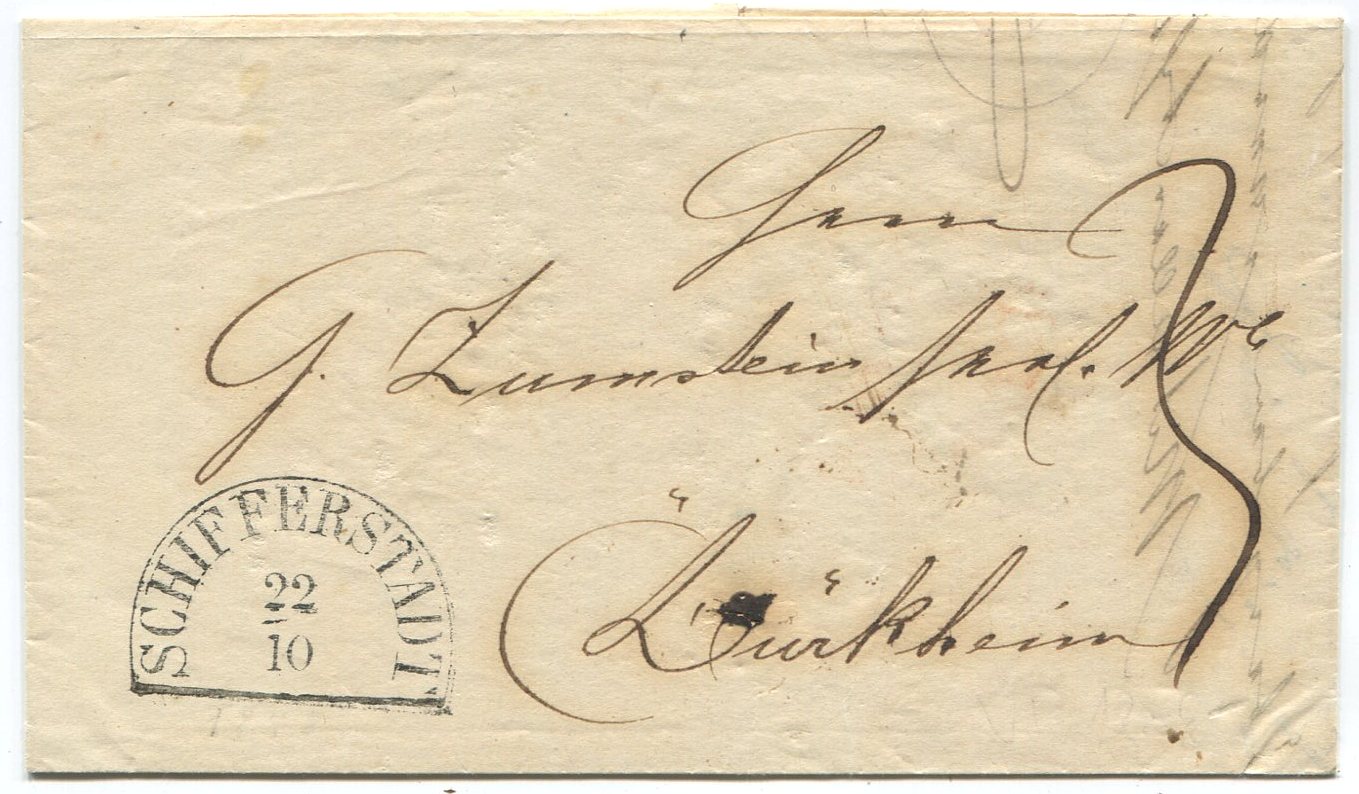 Herrn
G. Zumstein seel. We
Dürkheim
3
SCHIFFERSTADT
22
10